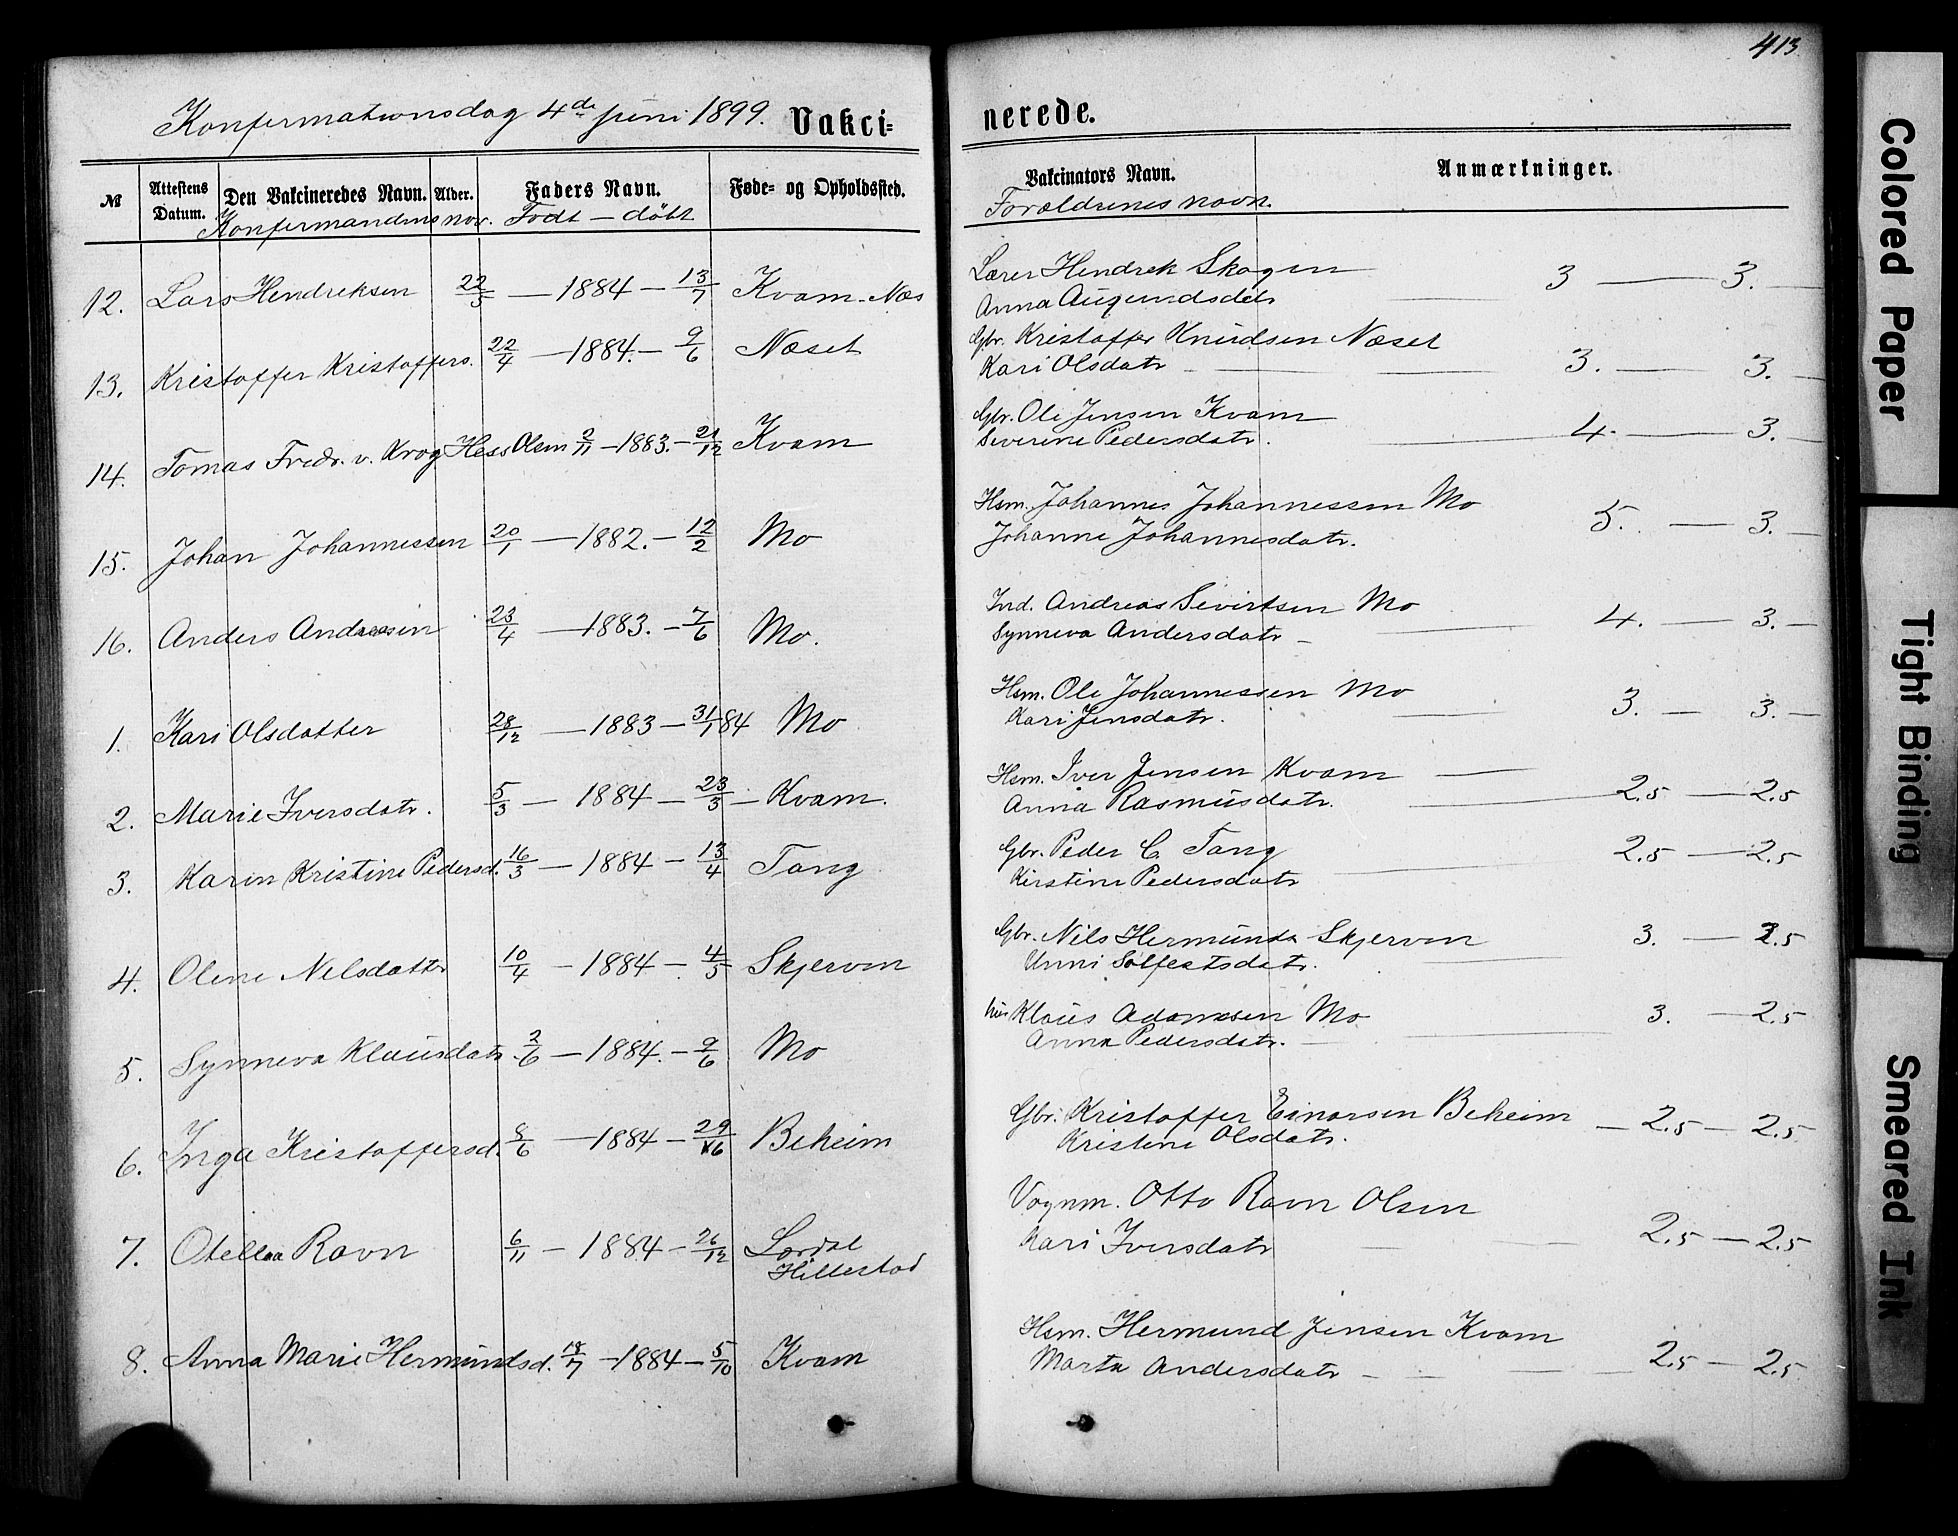 413
Konfirmationsdag 4de juni 1899. Vakci=
nerede.
№ Attestens Datum. Den Vakcineredes Navn. Alder. Faders Navn. Føde= og Opholdssted.
Vakcinators Navn. Anmærkninger.
Konfirmandens nav. Født — døbt
Forældrenes navn.
12. Lars Hendreksen 22/5 — 1884 — 13/7 Kvam. Næs
Lærer Hendrek Skogen
Anna Augundsdatr 3 — 3.
13. Kristoffer Kristoffers. 22/4 — 1884. — 9/6 Næset
Gbr. Kristoffer Knudsen Næset
Kari Olsdatr — 3. — 3.
14. Tomas Fredr. v. Krog Hess Olsen 2/11 — 1883. — 21/12 Kvam
Gbr. Ole Jensen Kvam
Severine Pedersdatr. 4. — 3.
15. Johan Johannessen 20/1 — 1882. — 12/2 Mo
Hsm. Johannes Johannessen Mo
Johanne Johannesdatr. 5. — 3.
16. Anders Andreasen 23/4 — 1883. — 7/6 Mo.
Ind. Andreas Sevirtsen Mo
Synneva Andersdatr — 4. — 3.
1. Kari Olsdatter 28/12 — 1883 — 31/1 84 Mo
Hsm. Ole Johannessen Mo
Kari Jensdatr. 3. — 3.
2. Marie Iversdatr. 5/3 — 1884 — 23/3 — Kvam.
Hsm. Iver Jensen Kvam —
Anna Rasmusdatr. 2.5 — 2.5
3. Karen Kristine Pedersd. 16/3 — 1884 — 13/4 Tang
Gbr. Peder C. Tang
Kirstine Pedersdatr 2.5 — 2.5
4. Oline Nelsdattr 10/4 — 1884 — 4/5 Skjerven
Gbr. Nils Hermunds Skjerven
Unni Solfestsdatr. 3. — 2.5
5. Synneva Klausdatr. 2/6 — 1884. — 9/6 Mo
Klaus Adamsen Mo
Anna Pedersdatr. — 3. — 2.5
6. Inga Kristoffersd. 8/6 — 1884 — 29/6 Beheim
Gbr. Kristoffer Einarsen Beheim
Kristine Olsdatr. — 2.5 — 2.5
7. Otellaa Ravn 6/11 — 1884 — 26/12 Lærdal
Hillestad
Vognm. Otto Ravn Olsen
Kari Iversdatr 2.5 — 2.5
8. Anna Marie Hermundsd. 18/7 — 1884 — 5/10 Kvam
Hsm. Hermund Jensen Kvam
Marta Andersdatr — 2.5 — 2.5
Colored Paper
Tight Binding
Smeared Ink